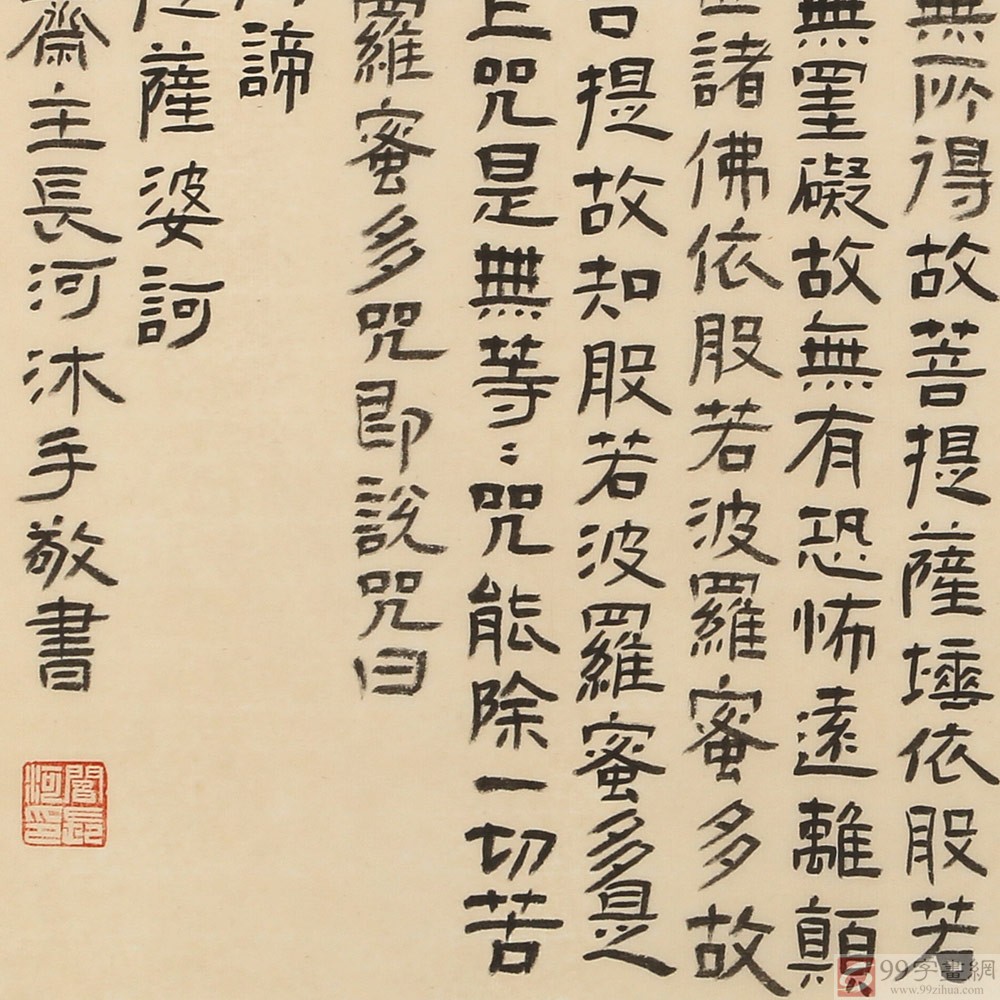 無所得故菩提薩埵依般若
無罣礙故無有恐怖遠離顛
諸佛依般若波羅蜜多故
提故知般若波羅蜜多是
上咒是無等〻咒能除一切苦
羅蜜多咒即說咒曰
諦
薩婆訶
齋主長河沐手敬書
閻長河印
99字畫網
www.99zihua.com